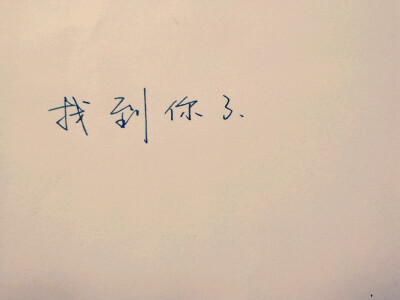 找到你了.